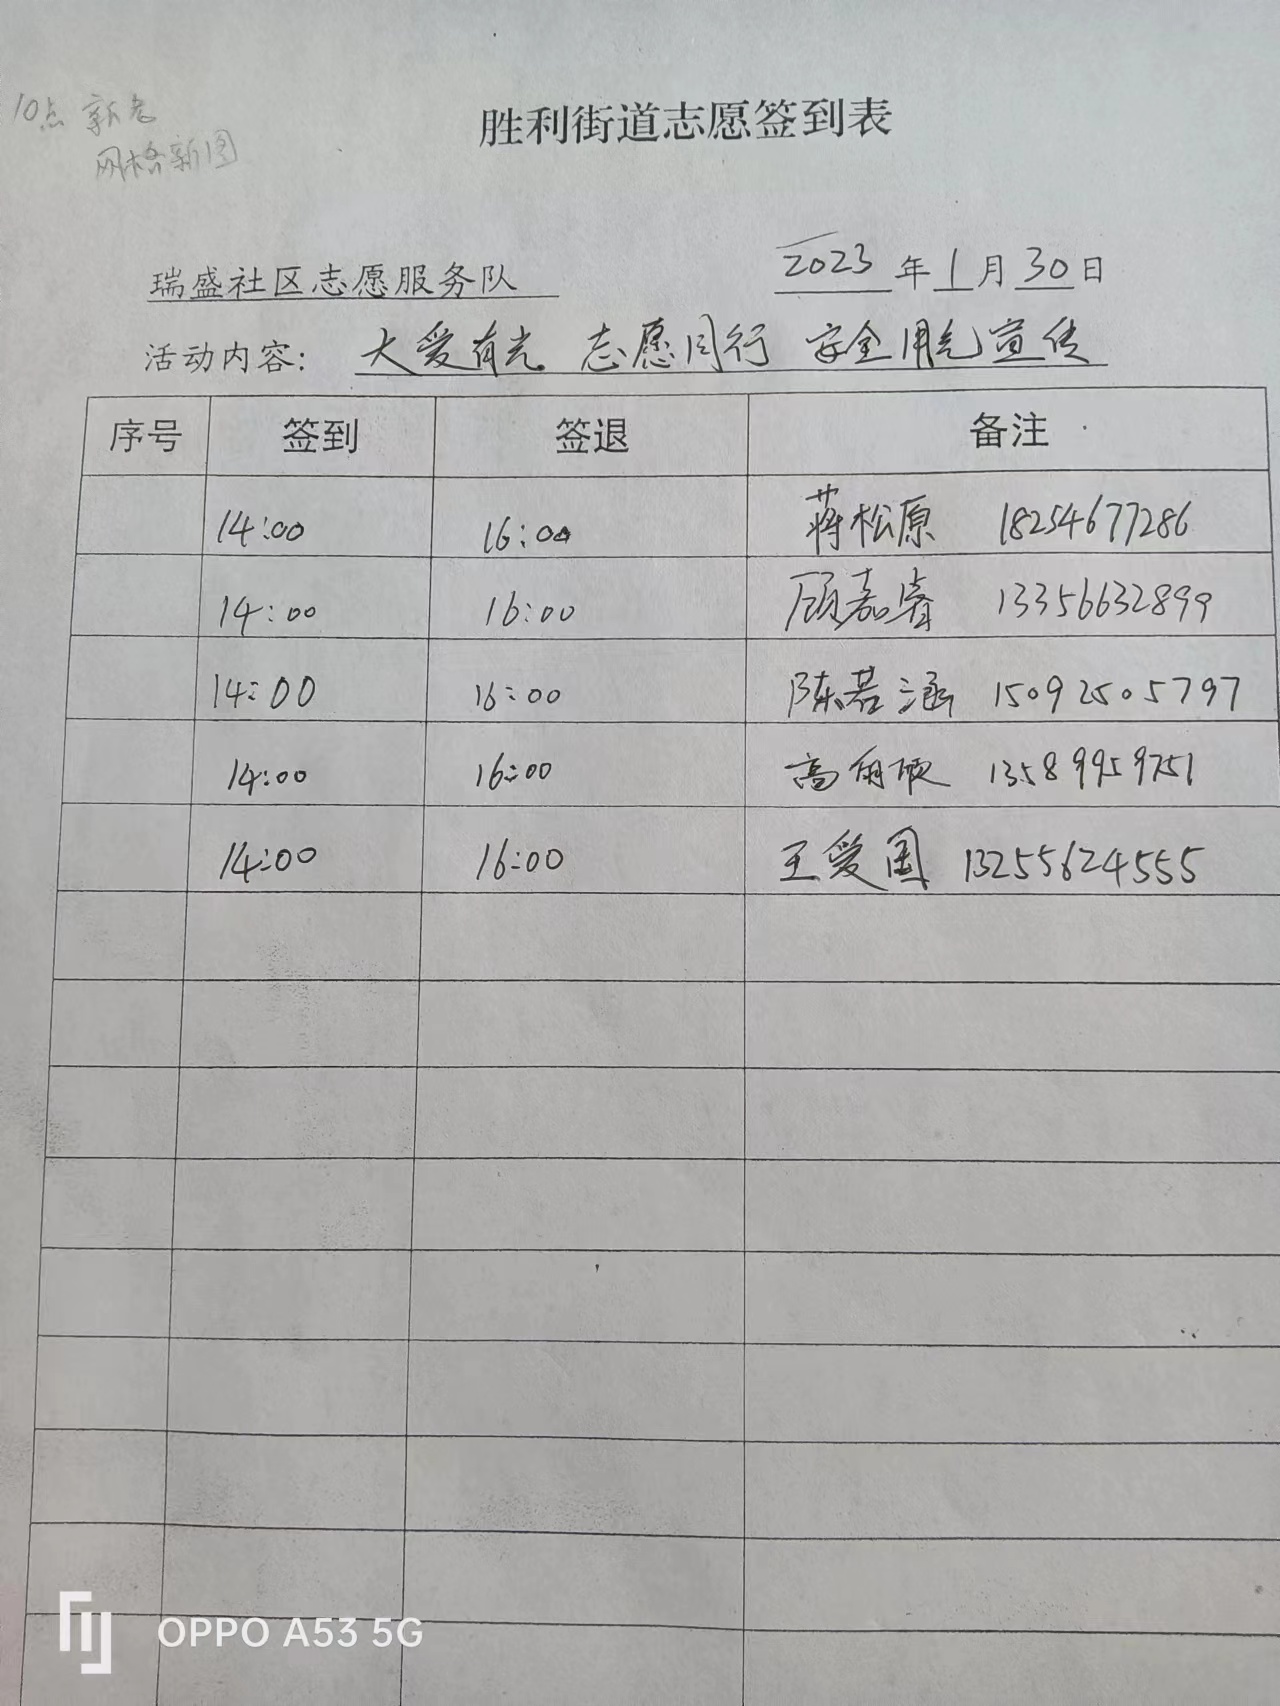 10点
网格新图
胜利街道志愿签到表
瑞盛社区志愿服务队 2023年1月30日
活动内容: 大爱有光 志愿同行 安全用气宣传
序号 签到 签退 备注
14:00 16:00 蒋松原 18254677286
14:00 16:00 顾嘉睿 13356632899
14:00 16:00 陈若涵 15092505797
14:00 16:00 高 13589959751
14:00 16:00 王爱国 13255624555
OPPO A53 5G